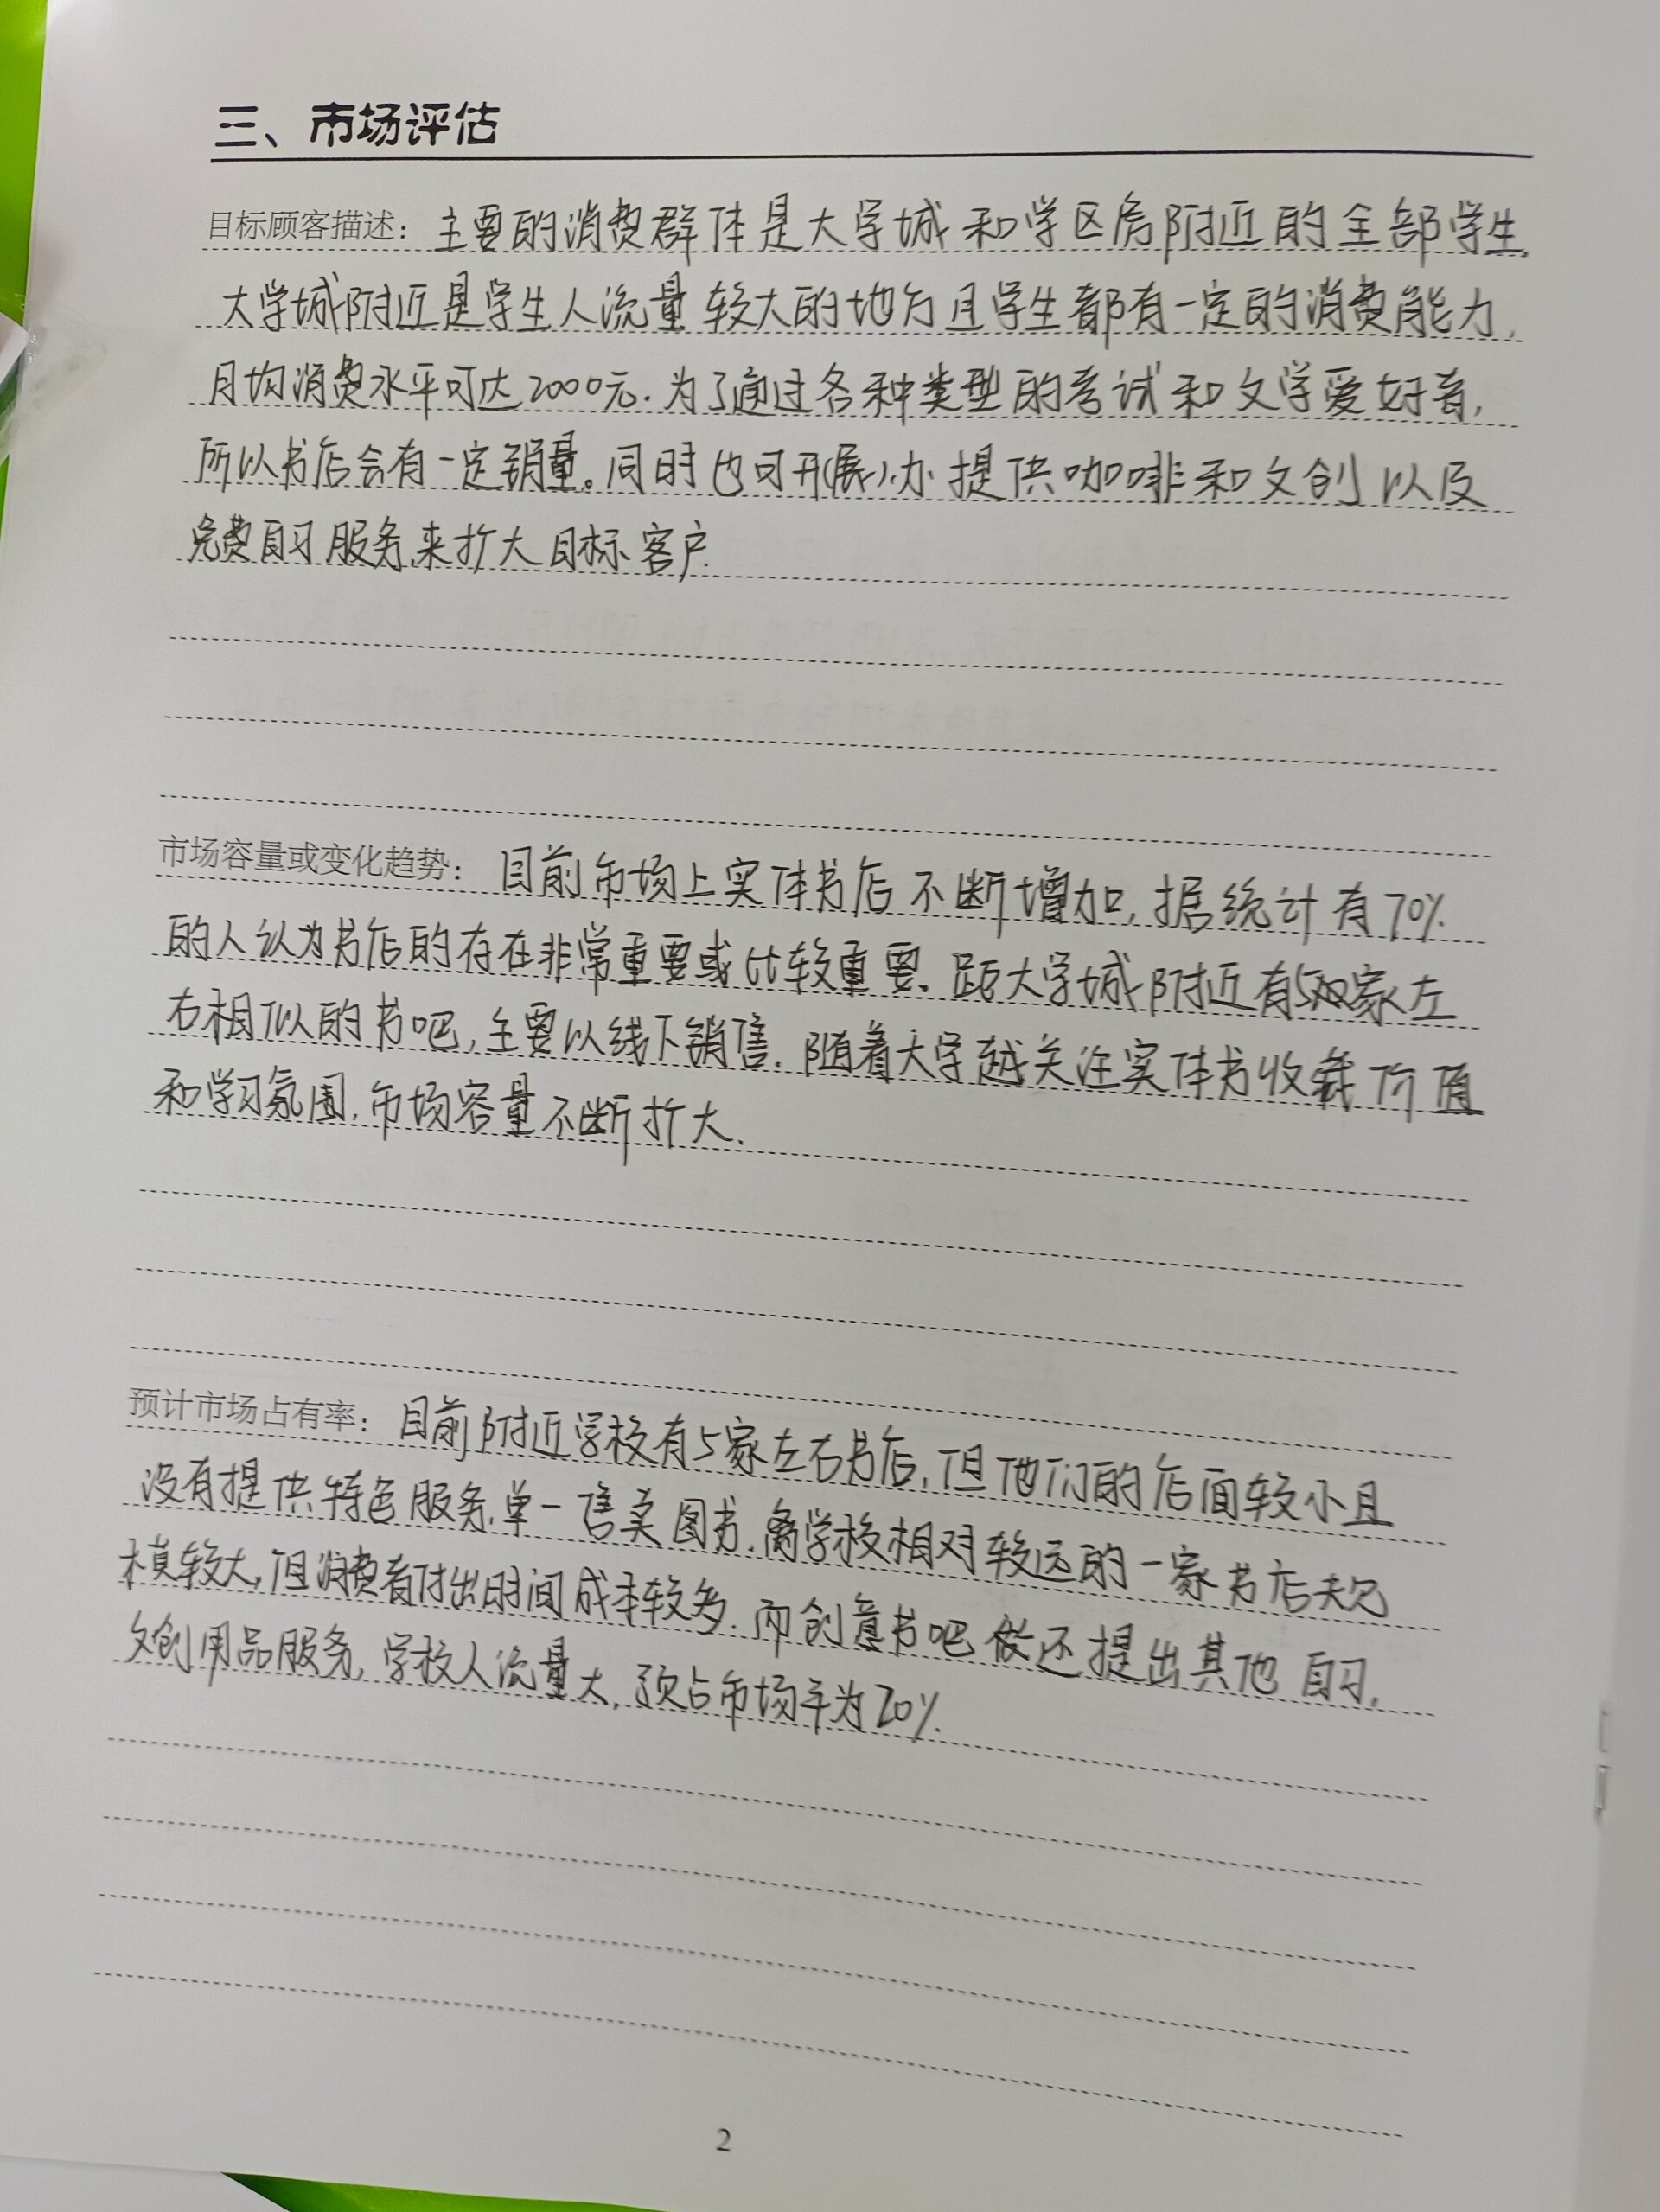 三、市场评估
目标顾客描述：主要的消费群体是大学城和学区房附近的全部学生.
大学城附近是学生人流量较大的地方且学生都有一定的消费能力,
月均消费水平可达2000元.为了通过各种类型的考试和文学爱好者,
所以书店会有一定销量。同时也可开(展)办提供咖啡和文创以及
免费自习服务,来扩大目标客户.
市场容量或变化趋势：目前市场上实体书店不断增加,据统计有70%
的人认为书店的存在非常重要或比较重要.距大学城附近有5家左
右相似的书吧,主要以线下销售.随着大学越关注实体书收藏价值
和学习氛围,市场容量不断扩大.
预计市场占有率：目前附近学校有5家左右书店,但他们的店面较小且
没有提供特色服务,单一售卖图书.离学校相对较远的一家书店夫见
模较大,但消费者付出时间成本较多.而创意书吧做还提出其他自习,
文创用品服务,学校人流量大,预占市场率为20%.
2